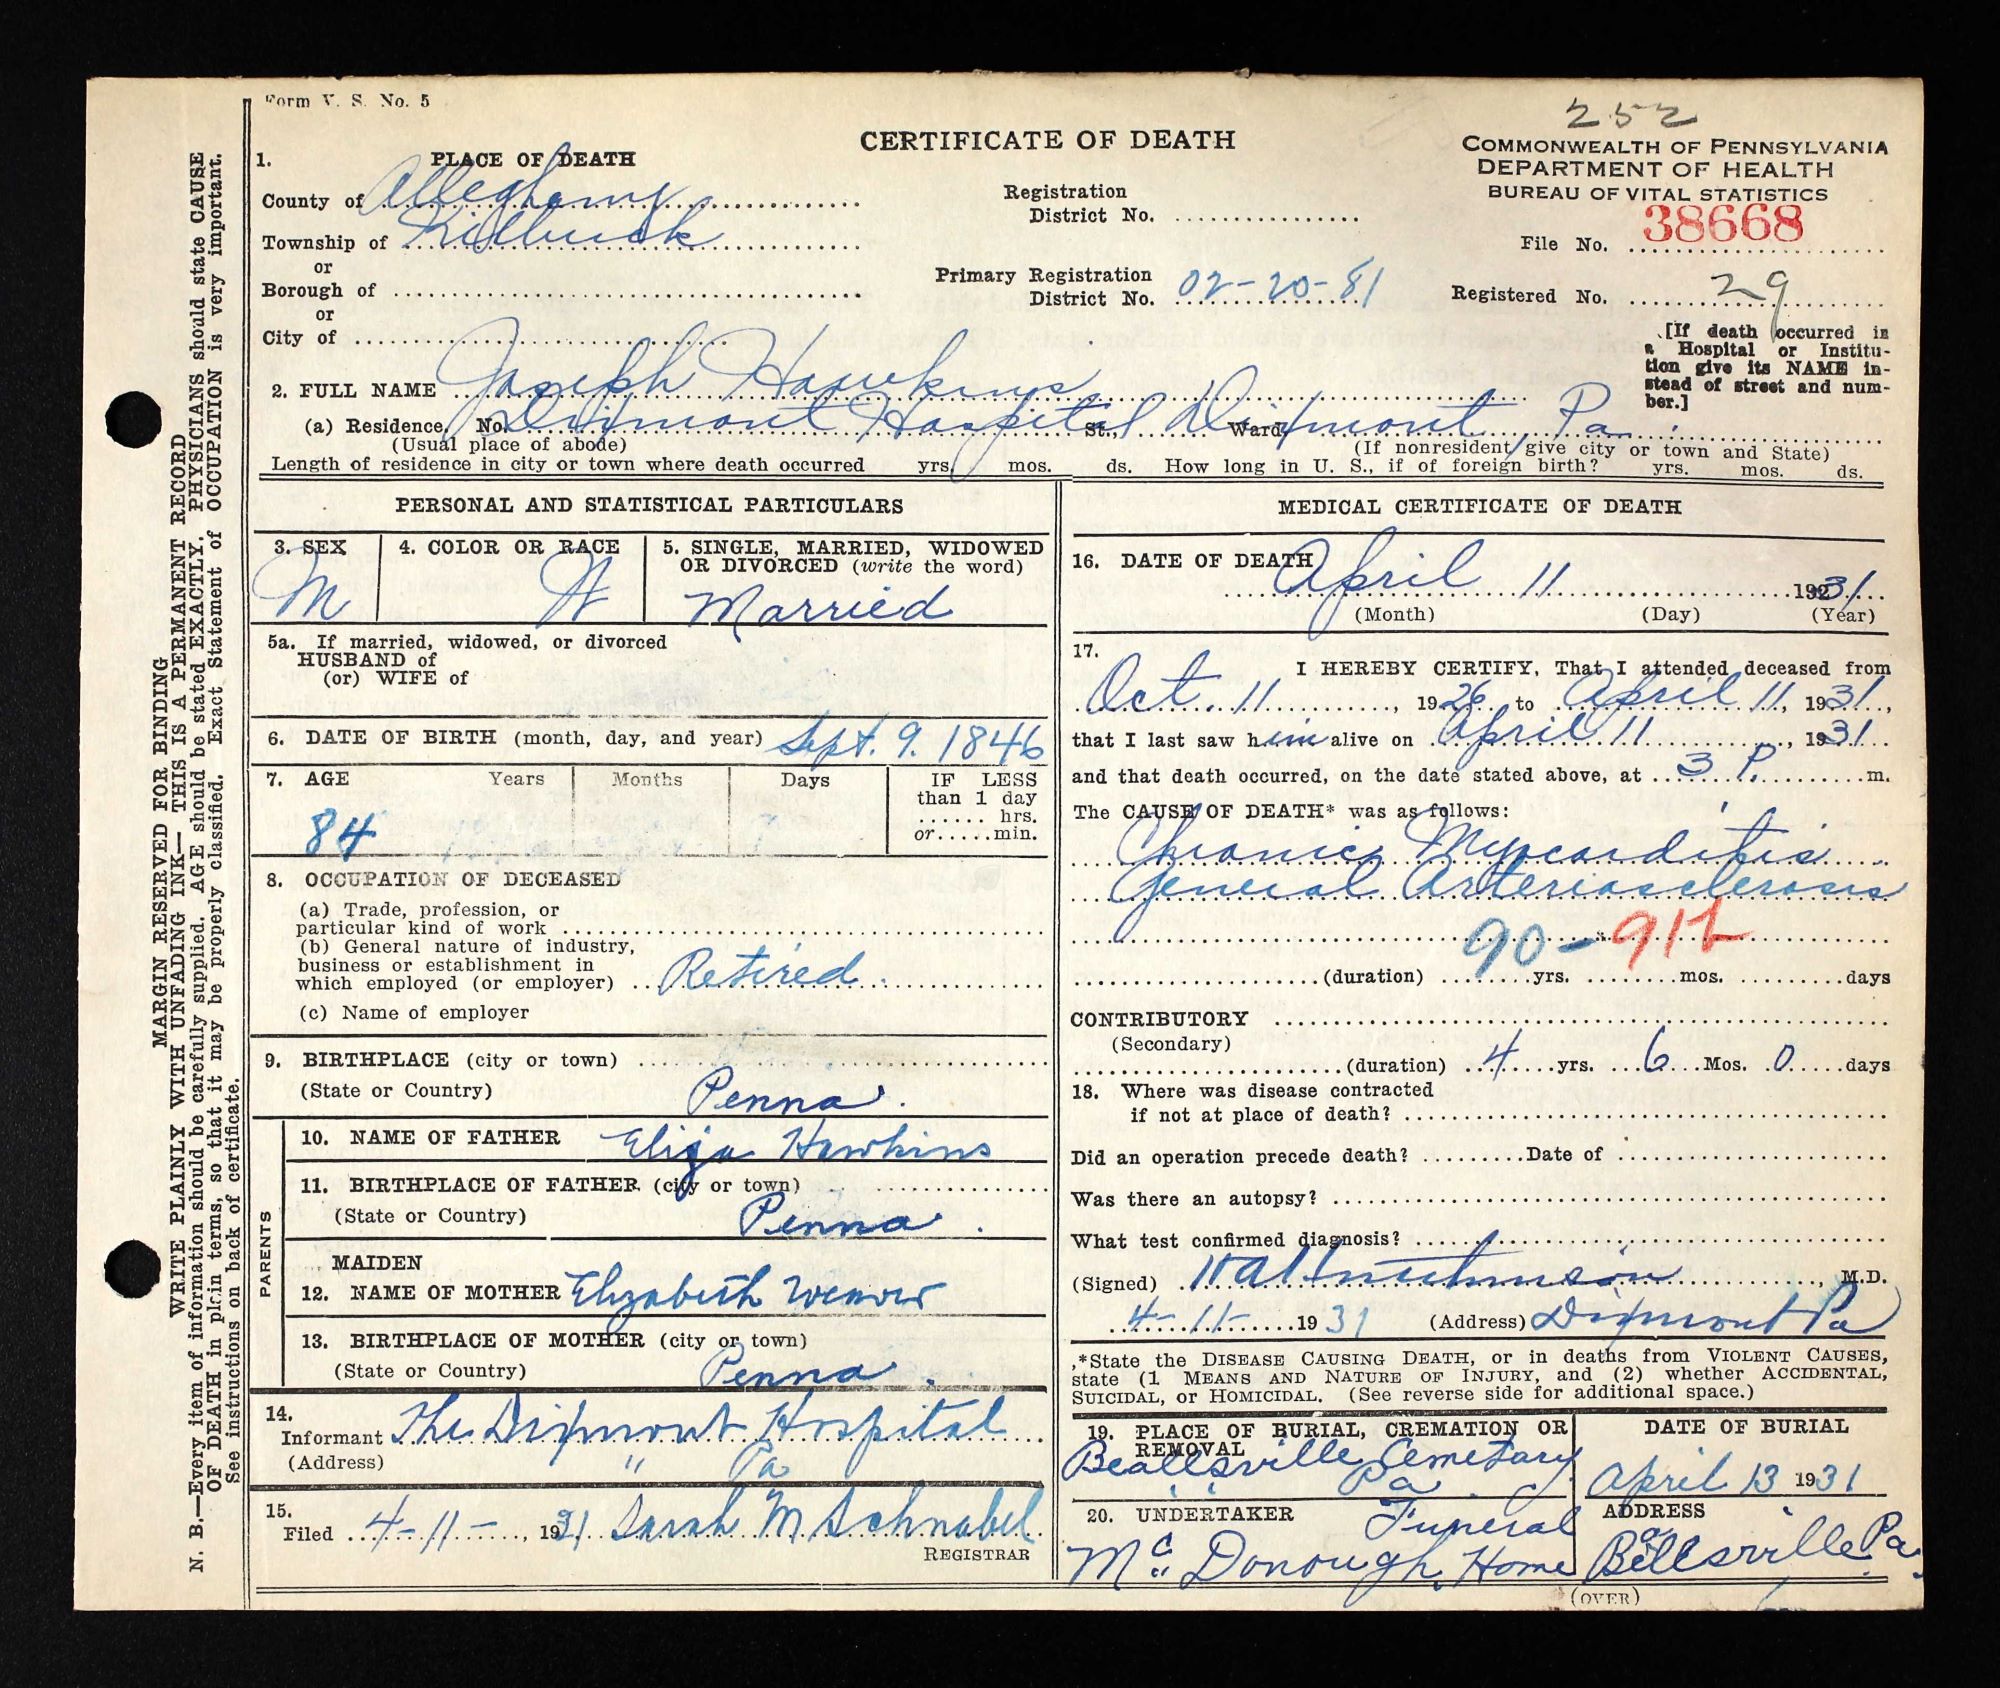 Form V. S. No. 5
252
CERTIFICATE OF DEATH
COMMONWEALTH OF PENNSYLVANIA
DEPARTMENT OF HEALTH
BUREAU OF VITAL STATISTICS
File No. 38668
Registered No. 29
1. PLACE OF DEATH
County of Allegheny
Township of Kilbuck
or
Borough of
or
City of
Registration
District No.
Primary Registration
District No. 02-20-81
[If death occurred in
a Hospital or Institu-
tion give its NAME in-
stead of street and num-
ber.]
2. FULL NAME Joseph Hawkins
(a) Residence. No. Dixmont Hospital St., Ward, Dixmont, Pa.
(Usual place of abode) (If nonresident give city or town and State)
Length of residence in city or town where death occurred yrs. mos. ds. How long in U. S., if of foreign birth? yrs. mos. ds.
PERSONAL AND STATISTICAL PARTICULARS
3. SEX
M
4. COLOR OR RACE
W
5. SINGLE, MARRIED, WIDOWED
OR DIVORCED (write the word)
Married
5a. If married, widowed, or divorced
HUSBAND of
(or) WIFE of
6. DATE OF BIRTH (month, day, and year) Sept. 9. 1846
7. AGE Years Months Days
84
IF LESS
than 1 day
...... hrs.
or.....min.
8. OCCUPATION OF DECEASED
(a) Trade, profession, or
particular kind of work
(b) General nature of industry,
business or establishment in
which employed (or employer) Retired.
(c) Name of employer
9. BIRTHPLACE (city or town)
(State or Country) Penna.
PARENTS
10. NAME OF FATHER Eliza Hawkins
11. BIRTHPLACE OF FATHER (city or town)
(State or Country) Penna.
MAIDEN
12. NAME OF MOTHER Elizabeth Weaver
13. BIRTHPLACE OF MOTHER (city or town)
(State or Country) Penna.
14.
Informant The Dixmont Hospital
(Address) " Pa
15.
Filed 4-11-, 1931 Sarah M Schnabel
REGISTRAR
MEDICAL CERTIFICATE OF DEATH
16. DATE OF DEATH
April 11 1931
(Month) (Day) (Year)
17. I HEREBY CERTIFY, That I attended deceased from
Oct. 11, 1926 to April 11, 1931,
that I last saw him alive on April 11, 1931
and that death occurred, on the date stated above, at 3 P. m.
The CAUSE OF DEATH* was as follows:
Chronic Myocarditis
General Arteriosclerosis
90-912
(duration) yrs. mos. days
CONTRIBUTORY
(Secondary)
(duration) 4 yrs. 6 Mos. 0 days
18. Where was disease contracted
if not at place of death?
Did an operation precede death? Date of
Was there an autopsy?
What test confirmed diagnosis?
(Signed) Hutchinson, M.D.
4-11-1931 (Address) Dixmont Pa
*State the DISEASE CAUSING DEATH, or in deaths from VIOLENT CAUSES,
state (1 MEANS AND NATURE OF INJURY, and (2) whether ACCIDENTAL,
SUICIDAL, or HOMICIDAL. (See reverse side for additional space.)
19. PLACE OF BURIAL, CREMATION OR
REMOVAL
Beallsville Cemetary
Pa.
DATE OF BURIAL
April 13 1931
20. UNDERTAKER
McDonough Funeral Home
ADDRESS
Beallsville Pa.
(OVER)
MARGIN RESERVED FOR BINDING
WRITE PLAINLY WITH UNFADING INK— THIS IS A PERMANENT RECORD
N. B.—Every item of information should be carefully supplied. AGE should be stated EXACTLY. PHYSICIANS should state CAUSE
OF DEATH in plain terms, so that it may be properly classified. Exact Statement of OCCUPATION is very important.
See instructions on back of certificate.